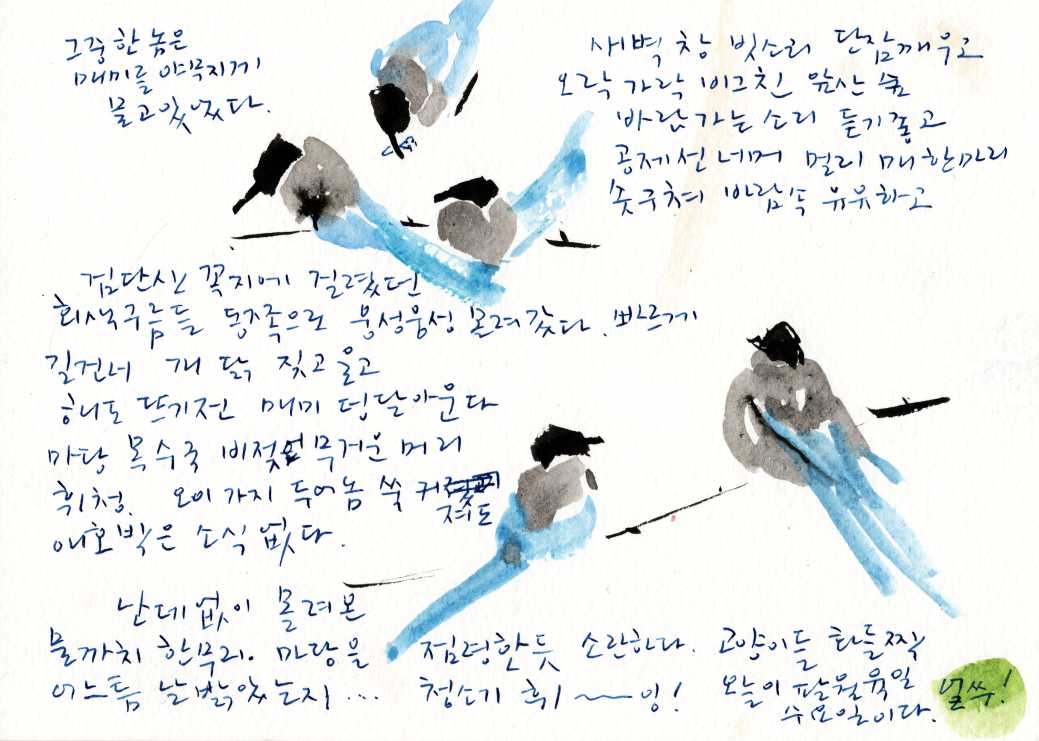 새벽 창 빗소리 단잠깨우고
오락가락 비그친 앞산 숲
바람가는소리 듣기좋고
공제선너머 멀리 매한마리
솟구쳐 바람속 유유하고
검단산 꼭지에 걸렸던
회색구름들 동쪽으로 뭉성뭉성 몰려갔다. 빠르게
길건너 개 닭 짖고울고
해도 뜨기전 매미 덥달아운다
마당 목수국 비젖어 무거운 머리
휘청. 오이가지 두어놈 쑥 커져도
애호박은 소식없다.
난데없이 몰려온
물까치 한무리. 마당을 점령한듯 소란하다. 고양이들 화들짝
어느틈 날밝았는지... 청소기 휘~~~잉! 오늘이 팔월육일
수요일이다. 얼쑤!
그중한놈은
매미를 야무지게
물고있었다.